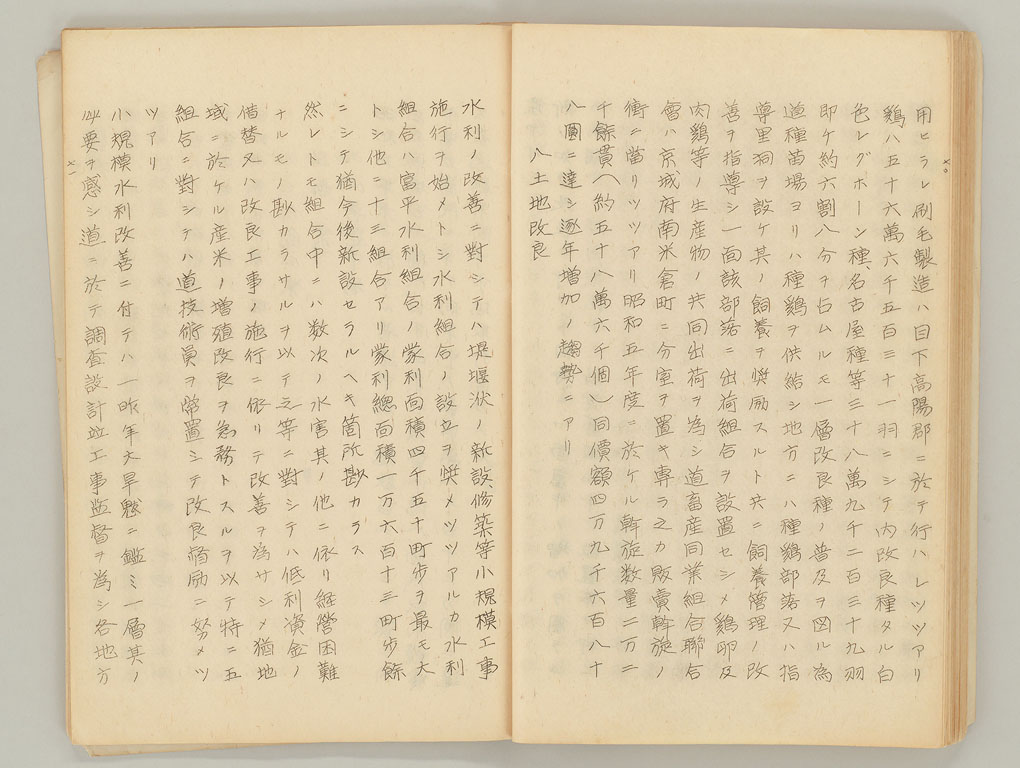 用ヒラレ刷毛製造ハ目下高陽郡ニ於テ行ハレツツアリ
鶏ハ五十六萬六千五百三十一羽ニシテ内改良種タル白
色レグホーン種、名古屋種等三十八萬九千二百三十九羽
即チ約六割八分ヲ占ムルモ一層改良種ノ普及ヲ図ル為
道種苗場ヨリハ種鶏ヲ供給シ地方ニハ種鶏部落又ハ指
導里洞ヲ設ケ其ノ飼養ヲ奨励スルト共ニ飼養管理ノ改
善ヲ指導シ一面該部落ニ出荷組合ヲ設置セシメ鶏卵及
肉鶏等ノ生産物ノ共同出荷ヲ為シ道畜産同業組合聯合
會ハ京城府南米倉町ニ分室ヲ置キ専ラ之カ販賣斡旋ノ
衝ニ當リツツアリ昭和五年度ニ於ケル斡旋数量二万二
千餘貫(約五十八萬六千個)同價額四万九千六百八十
八圓ニ達シ逐年増加ノ趨勢ニアリ
八土地改良
水利ノ改善ニ對シテハ堤堰洑ノ新設、修築等小規模工事
施行ヲ始メトシ水利組合ノ設立ヲ奨メツツアルカ水利
組合ハ富平水利組合ノ蒙利面積四千五十町歩ヲ最モ大
トシ他ニ十三組合アリ蒙利總面積一万六百十三町歩餘
ニシテ猶今後新設セラルヘキ箇所尠カラス
然レトモ組合中ニハ数次ノ水害其ノ他ニ依リ経営困難
ナルモノ尠カラサルヲ以テ之等ニ對シテハ低利資金ノ
借替又ハ改良工事ノ施行ニ依リテ改善ヲ為サシメ猶地
域ニ於ケル産米ノ増殖改良ヲ急務トスルヲ以テ特ニ五
組合ニ對シテハ道技術員ヲ常置シテ改良督励ニ努メツ
ツアリ
小規模水利改善ニ付テハ一昨年大旱魃ニ鑑ミ一層其ノ
必要ヲ感シ道ニ於テ調査設計竝工事監督ヲ為シ各地方